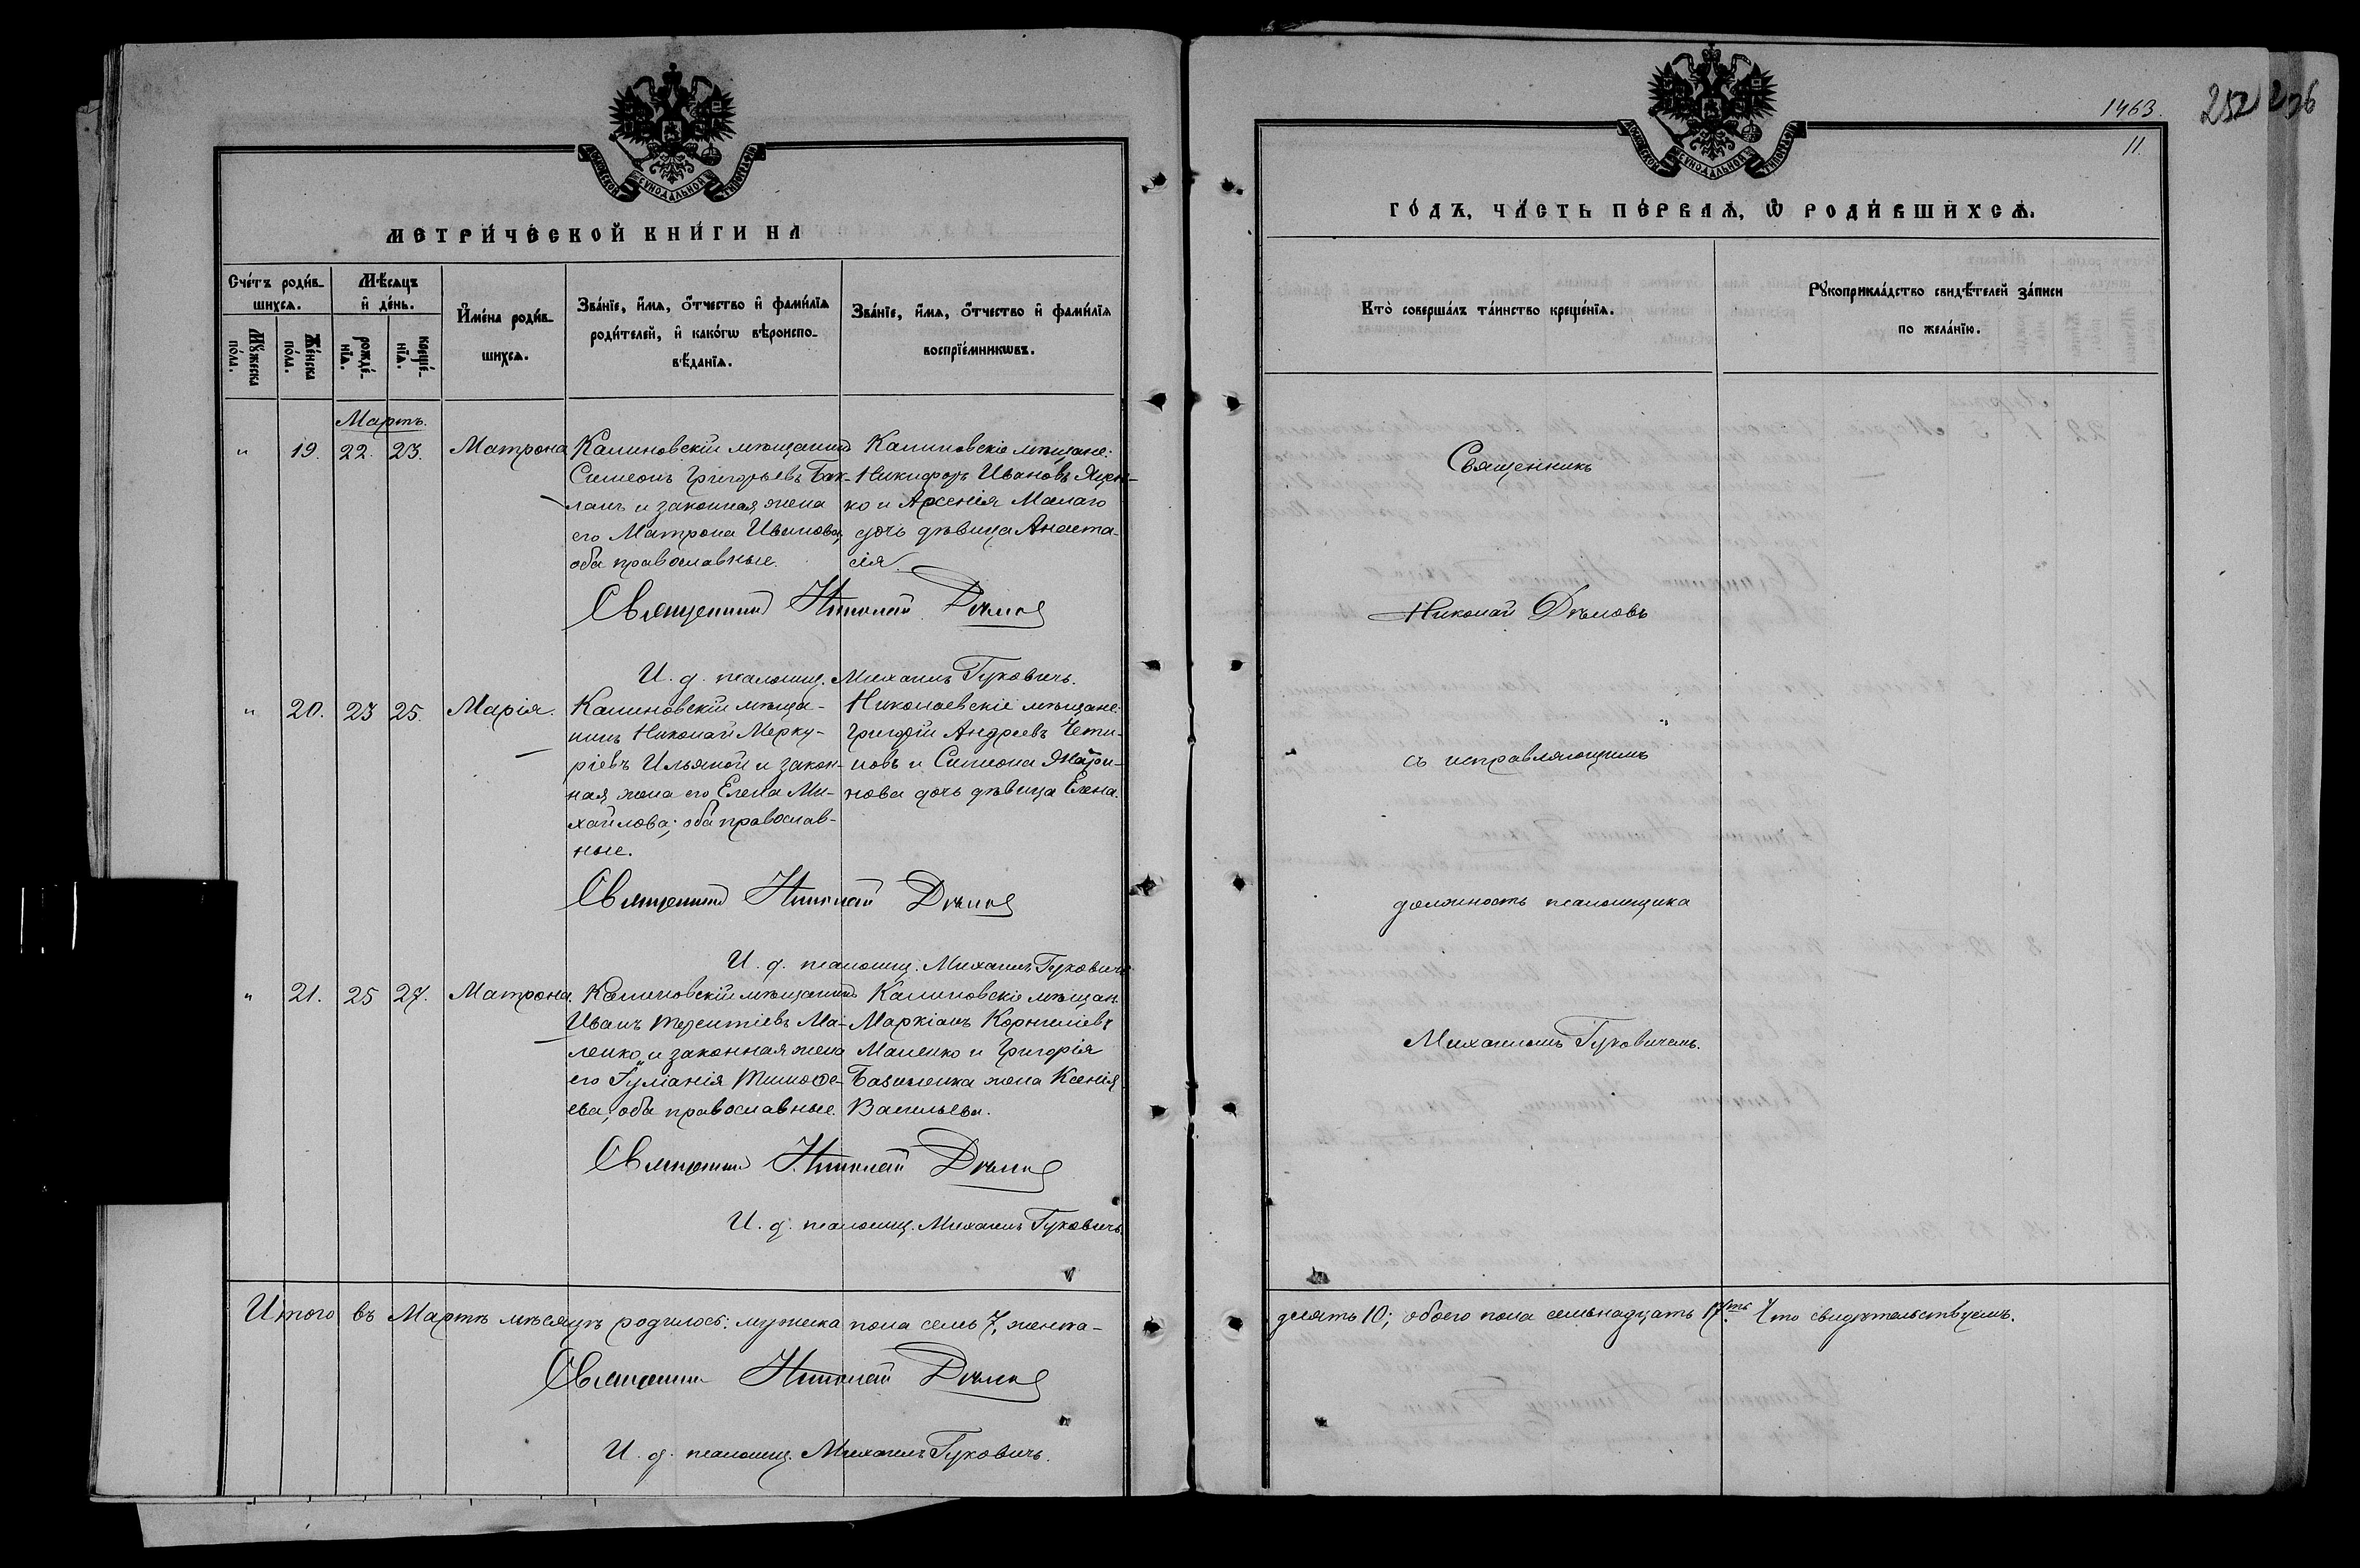 МОСКОВСКОЙ СѴНОДАЛЬНОЙ ТИПОГРАФІИ
МЕТРИЧЕСКОЙ КНИГИ НА
Счетъ родив-
шихсѧ.
Мѣсѧцъ
и день.
Имена родив-
шихсѧ.
Званіе, имѧ, отчество и фамиліѧ
родителей, и какогѡ вѣроиспо-
вѣданіѧ.
Званіе, имѧ, отчество и фамиліѧ
воспріемникѡвъ.
Мꙋжеска
пола.
Женска
пола.
рожде-
ніѧ.
креще-
ніѧ.
Мартъ.
" 19. 22. 23. Матрона
Калиновскій мѣщанинъ
Симеонъ Григорьевъ Бак-
ланъ и законная жена
его Матрона Иванова,
оба православные.
Калиновскіе мѣщане:
Никифоръ Ивановъ
ко и Арсенія Малаго
дочь дѣвица Анаста-
сія.
Священникъ Николай Дѣмовъ
И. д. псаломщ. Михаилъ Гуковичъ.
" 20. 23 25. Марія.
Калиновскій мѣща-
нинъ Николай Мерку-
ріевъ Ильяной и закон-
ная жена его Елена Ми-
хайлова; оба православ-
ные.
Николаевскіе мѣщане:
Григорій Андреевъ Чети-
новъ и Симеона
нова дочь дѣвица Елена.
Священникъ Николай Дѣмовъ
И. д. псаломщ. Михаилъ Гуковичъ
" 21. 25 27. Матрона.
Калиновскій мѣщанинъ
Иванъ Терентіевъ Ма-
ленко и законная жена
его Іуліанія Тимоѳе-
ева, оба православные.
Калиновскіе мѣщан.
Маркіанъ Корниліевъ
Маленко и Григорія
Базиленка жена Ксенія
Васильева.
Священникъ Николай Дѣмовъ
И. д. псаломщ. Михаилъ Гуковичъ.
Итого въ Мартѣ мѣсяцѣ родилось: мужска пола семь 7, женска-
Священникъ Николай Дѣмовъ
И. д. псаломщ. Михаилъ Гуковичъ.
1463.
252
11.
МОСКОВСКОЙ СѴНОДАЛЬНОЙ ТИПОГРАФІИ
ГОДЪ, ЧАСТЬ ПЕРВАѦ, Ѡ РОДИВШИХСѦ.
Кто совершалъ таинство крещеніѧ.
Рꙋкоприкладство свидѣтелей записи
по желанію.
Священникъ
Николай Дѣмовъ
съ исправляющимъ
должность псаломщика
Михаиломъ Гуковичемъ.
десять 10; обоего пола семьнадцать 17ть. Что свидѣтельствуемъ.